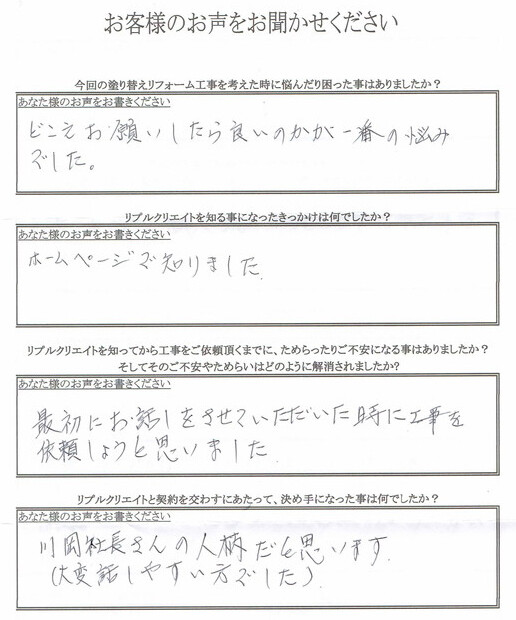 お客様のお声をお聞かせください
今回の塗り替えリフォーム工事を考えた時に悩んだり困った事はありましたか？
あなた様のお声をお書きください
どこえお願いしたら良いのかが一番の悩み
でした。
リプルクリエイトを知る事になったきっかけは何でしたか？
あなた様のお声をお書きください
ホームページで知りました.
リプルクリエイトを知ってから工事をご依頼頂くまでに、ためらったりご不安になる事はありましたか？
そしてそのご不安やためらいはどのように解消されましたか?
あなた様のお声をお書きください
最初にお話しをさせていただいた時に工事を
依頼しようと思いました.
リプルクリエイトと契約を交わすにあたって、決め手になった事は何でしたか？
あなた様のお声をお書きください
川岡社長さんの人柄だと思います.
(大変話しやすい方でした)